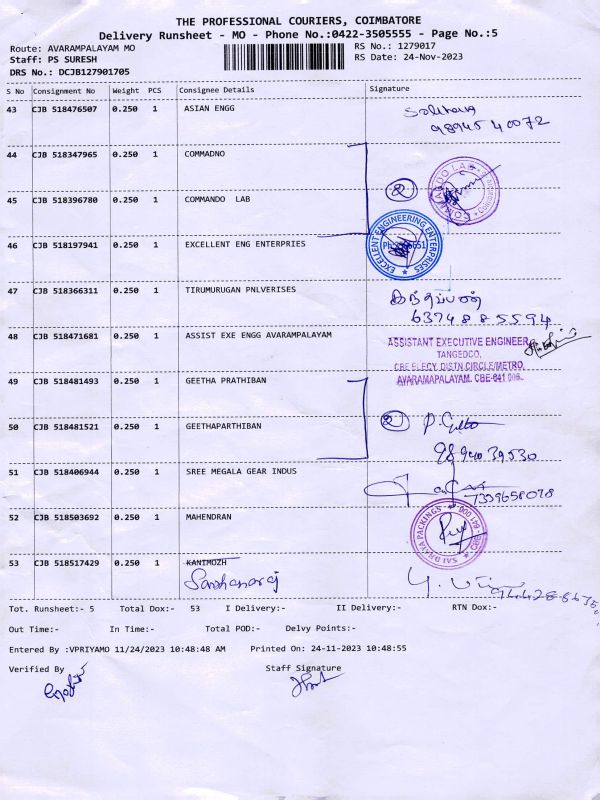 THE PROFESSIONAL COURIERS, COIMBATORE
Delivery Runsheet - MO - Phone No.:0422-3505555 - Page No.:5
Route: AVARAMPALAYAM MO RS No.: 1279017
Staff: PS SURESH RS Date: 24-Nov-2023
DRS No.: DCJB127901705
S No Consignment No Weight PCS Consignee Details Signature
43 CJB 518476507 0.250 1 ASIAN ENGG
98945 40072
44 CJB 518347965 0.250 1 COMMADNO
② COMMANDO LAB
45 CJB 518396780 0.250 1 COMMANDO LAB
46 CJB 518197941 0.250 1 EXCELLENT ENG ENTERPRIES
EXCELLENT ENGINEERING ENTERPRISES
47 CJB 518366311 0.250 1 TIRUMURUGAN PNLVERISES கந்தப்பன்
6374885594
48 CJB 518471681 0.250 1 ASSIST EXE ENGG AVARAMPALAYAM ASSISTANT EXECUTIVE ENGINEER
TANGEDCO,
CBE ELECY. DISTN CIRCLE/METRO,
AVARAMAPALAYAM. CBE-641 006.
49 CJB 518481493 0.250 1 GEETHA PRATHIBAN
50 CJB 518481521 0.250 1 GEETHAPARTHIBAN ②
98940 39530
51 CJB 518406944 0.250 1 SREE MEGALA GEAR INDUS
7339658078
52 CJB 518503692 0.250 1 MAHENDRAN
SAI DHAYA PACKINGS
53 CJB 518517429 0.250 1 KANIMOZH
Tot. Runsheet:- 5 Total Dox:- 53 I Delivery:- II Delivery:- RTN Dox:-
Out Time:- In Time:- Total POD:- Delvy Points:-
Entered By :VPRIYAMO 11/24/2023 10:48:48 AM Printed On: 24-11-2023 10:48:55
Verified By Staff Signature